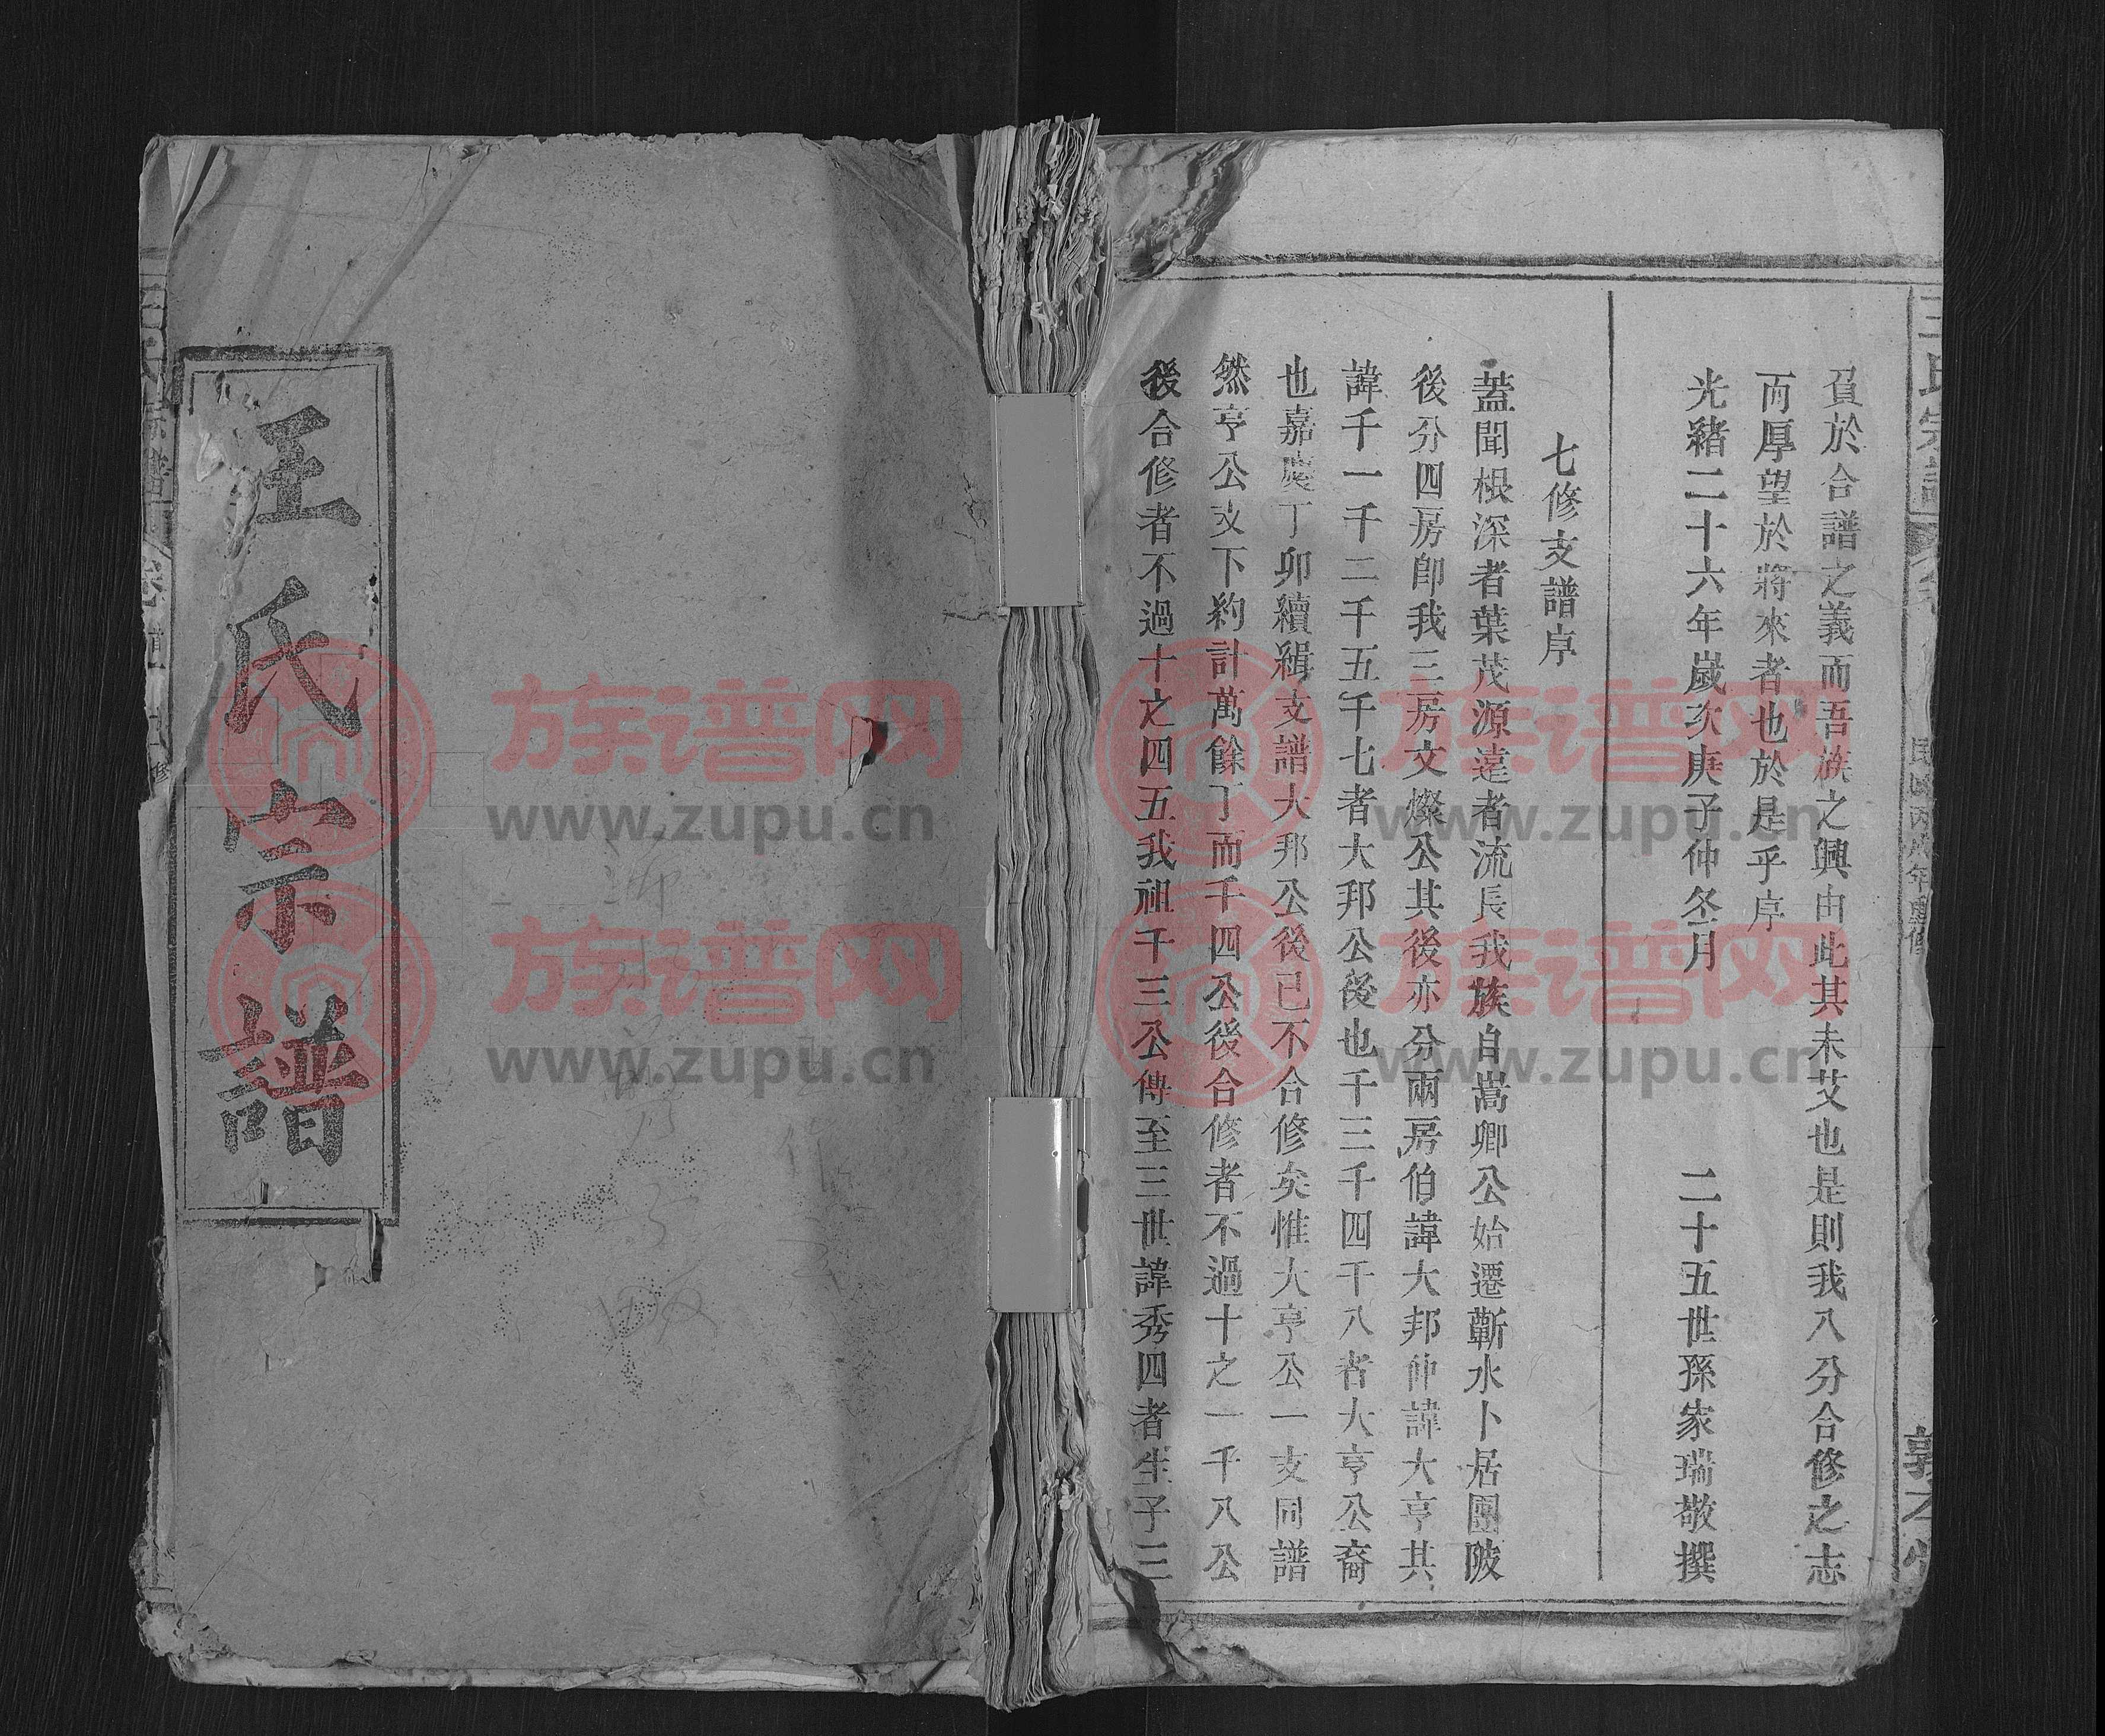 負於合譜之義而吾族之興由此其未艾也是則我八分合修之志
而厚望於將來者也於是乎序
光緒二十六年歲次庚子仲冬月 二十五世孫家瑞敬撰
七修支譜序
蓋聞根深者葉茂源遠者流長我族自嵩卿公始遷蘄水卜居團陂
後分四房卽我三房文燦公其後亦分兩房伯諱大邦仲諱大亨其
諱千一千二千五千七者大邦公後也千三千四千八者大亨公裔
也嘉慶丁卯續緝支譜大邦公後已不合修矣惟大亨公一支同譜
然亨公支下約計萬餘丁而千四公後合修者不過十之一千八公
後合修者不過十之四五我祖千三公傳至三世諱秀四者生子三
王氏宗譜
族谱网
www.zupu.cn
族谱网
www.zupu.cn
族谱网
www.zupu.cn
族谱网
www.zupu.cn